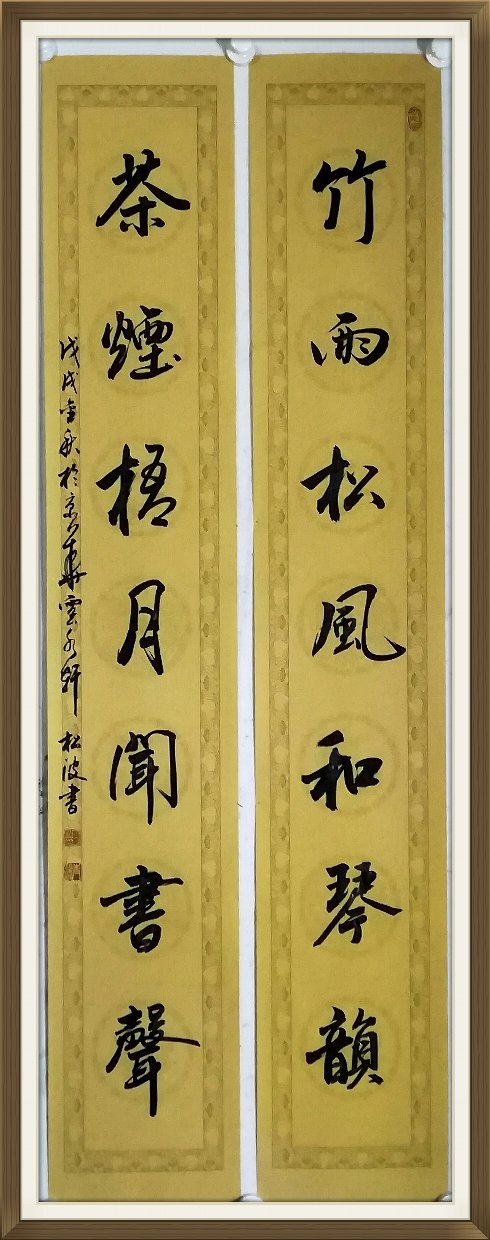 竹雨松風和琴韻
茶煙梧月聞書聲
戊戌金秋於京華雲水軒 松波書